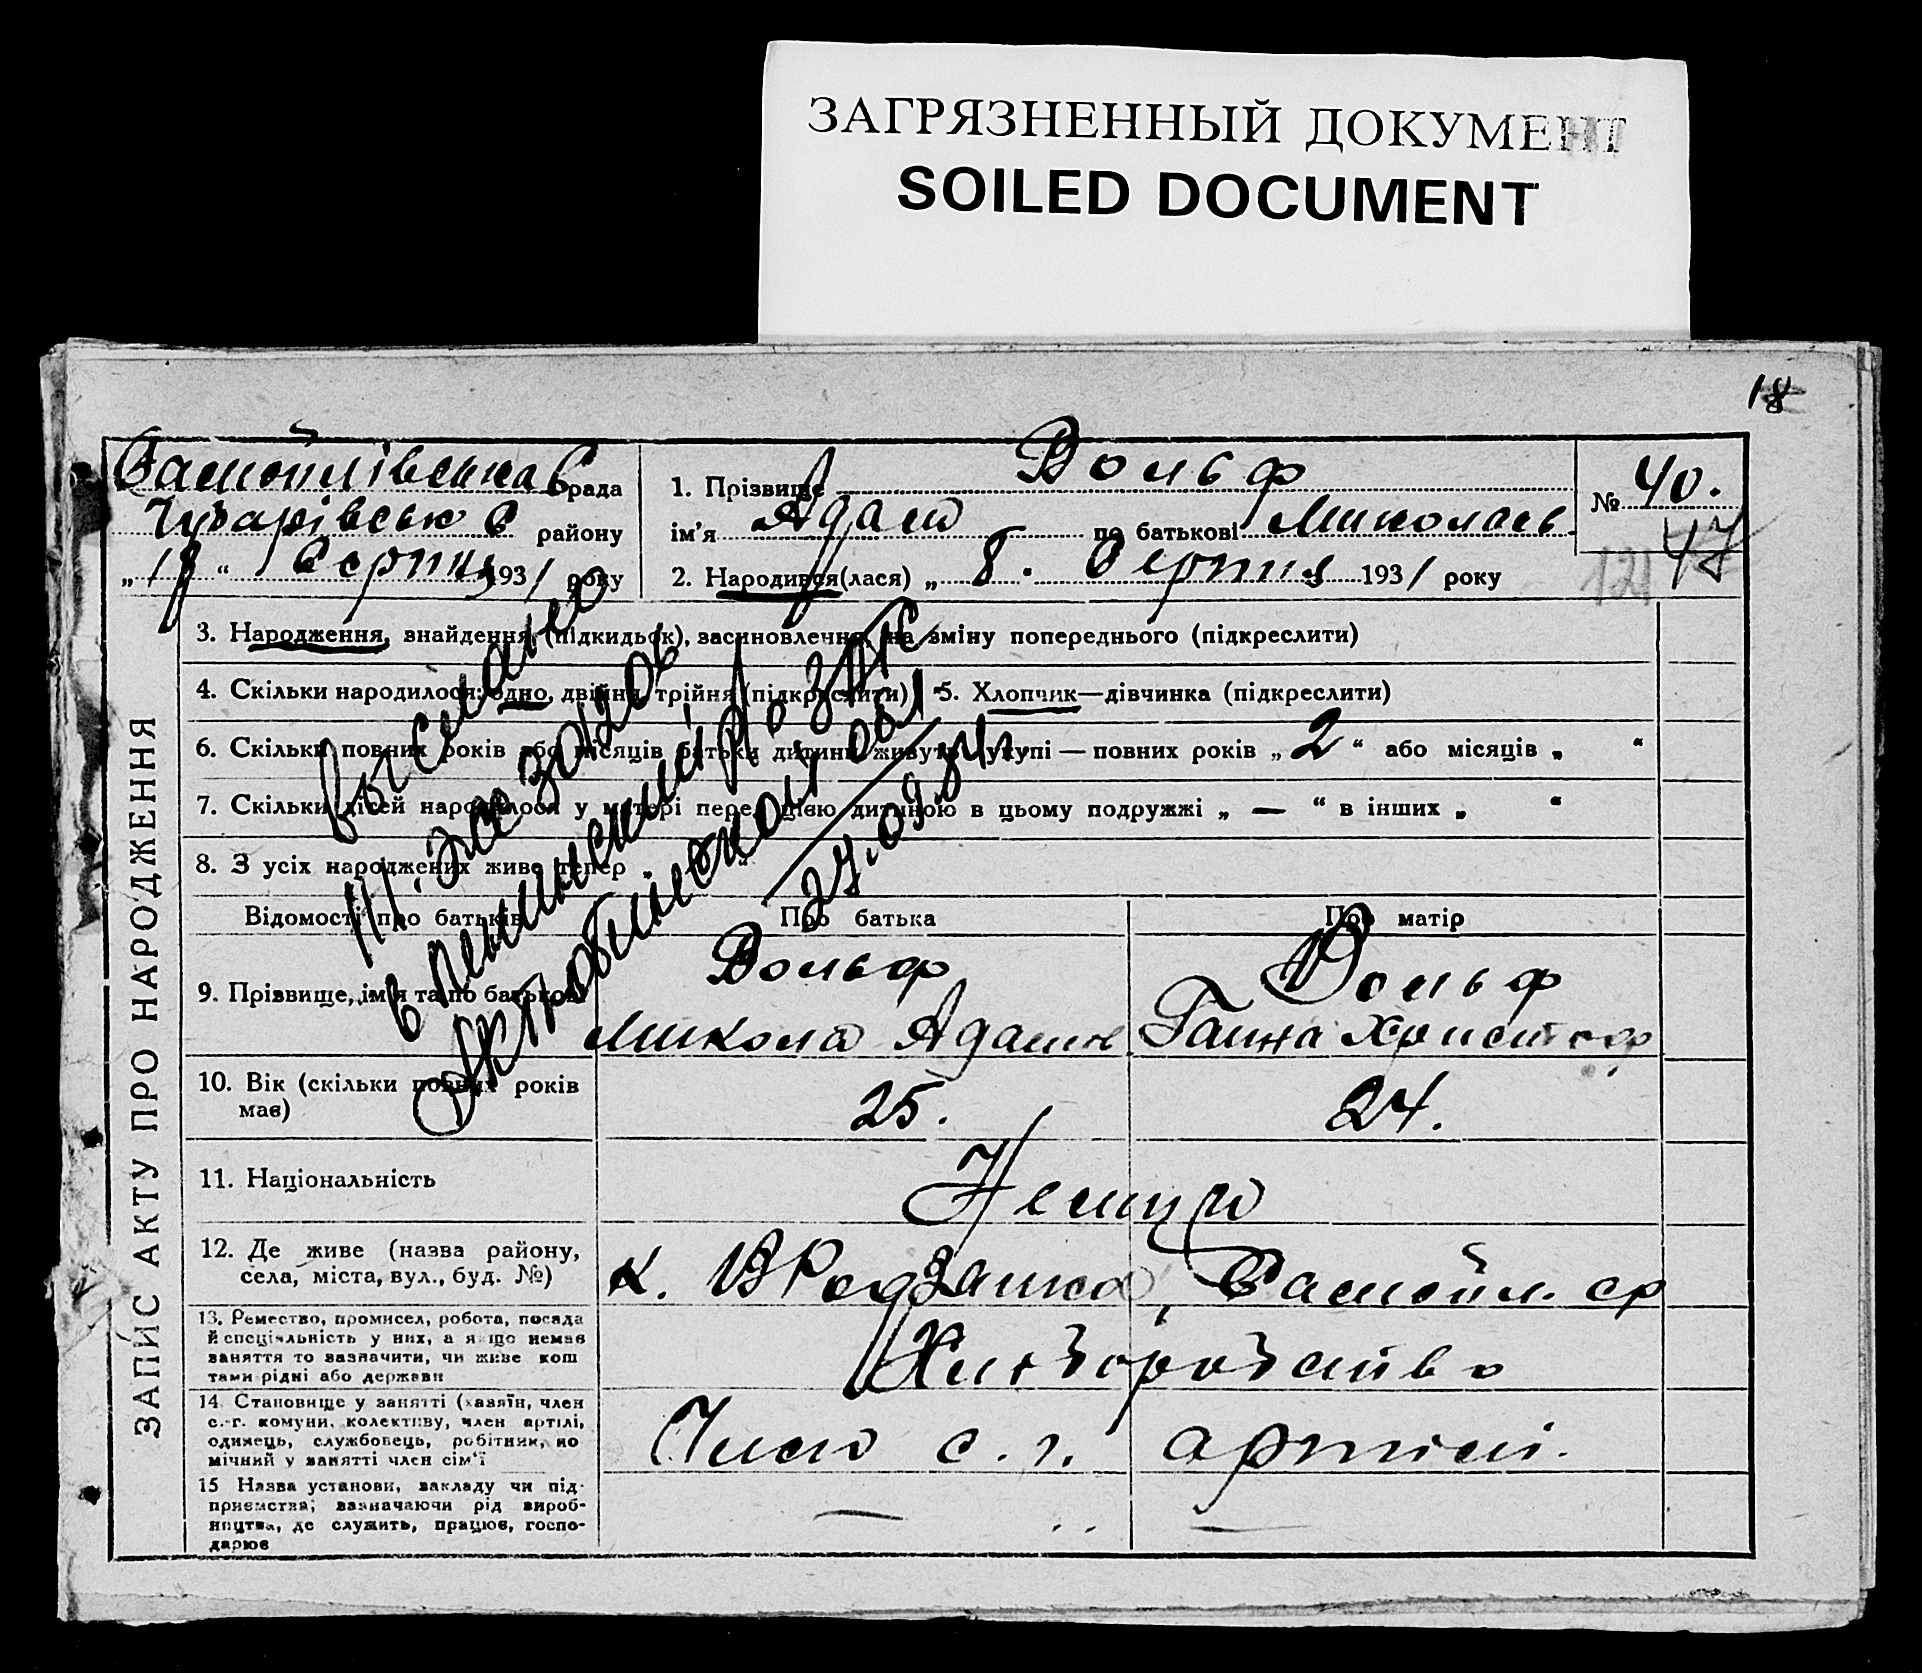 ЗАГРЯЗНЕННЫЙ ДОКУМЕНТ
SOILED DOCUMENT
18
Самойлівська С рада
Чубарівськ району
„ 18 “ серпня 1931 року
1. Прізвище Вольф
ім’я Адам по батькові Миколаєв
2. Народився(лася) „ 8. серпня 1931 року
№ 40.
47
121
ЗАПИС АКТУ ПРО НАРОДЖЕННЯ
3. Народження, знайдення (підкидьок), засиновлення, на зміну попереднього (підкреслити)
4. Скільки народилося: одно, двійня, трійня (підкреслити) 5. Хлопчик—дівчинка (підкреслити)
6. Скільки повних років або місяців батьки дитини живуть укупі — повних років „ 2 “ або місяців „ “
7. Скільки дітей народилося у матері перед цією дитиною в цьому подружжі „ — “ в інших „ “
8. З усіх народжених живе тепер
выслано
в Ленинский р. ЗАГС
Актюбинской обл.
24.09.84
Відомості про батьків Про батька Про матір
9. Прізвище, ім’я та по батькові Вольф Вольф
Микола Адамов Ганна Христоф
10. Вік (скільки повних років має) 25. 24.
11. Національність Немци
12. Де живе (назва району, села, міста, вул., буд. №)
к. В Родзянка, Самойл. ср
13. Ремество, промисел, робота, посада
й спеціяльність у них, а якщо немає
заняття то зазначити, чи живе кош
тами рідні або держави
Хліборобство
14. Становище у занятті (хазяїн, член
с.-г. комуни, колективу, член артілі,
одинець, службовець, робітник, по
мічний у занятті член сім’ї
Член с. г. артілі.
15 Назва установи, закладу чи під-
приємства; зазначаючи рід вироб-
ництва, де служить, працює, госпо-
дарює
— —